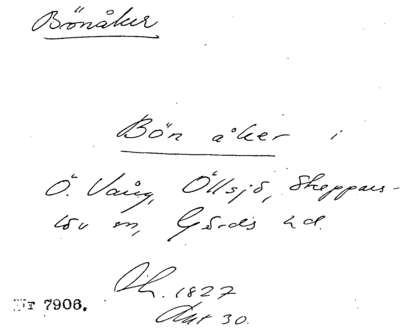 Bönåker
Bön åker i
Ö. Vång, Öllsjö, Skeppars-
löv sn, Gärds hd.
Sk. 1827
Akt 30.
Nr 7906.